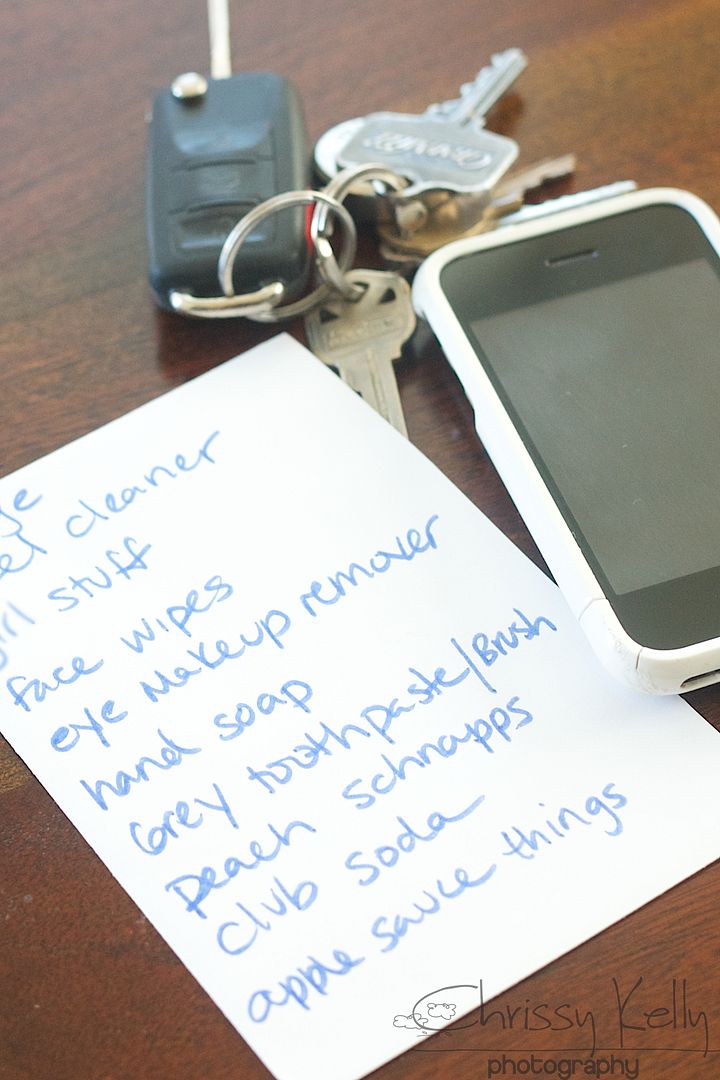 cleaner
stuff
face wipes
eye Makeup remover
hand soap
Grey toothpaste/Brush
peach schnapps
Club soda
apple sauce things
Chrissy Kelly
photography